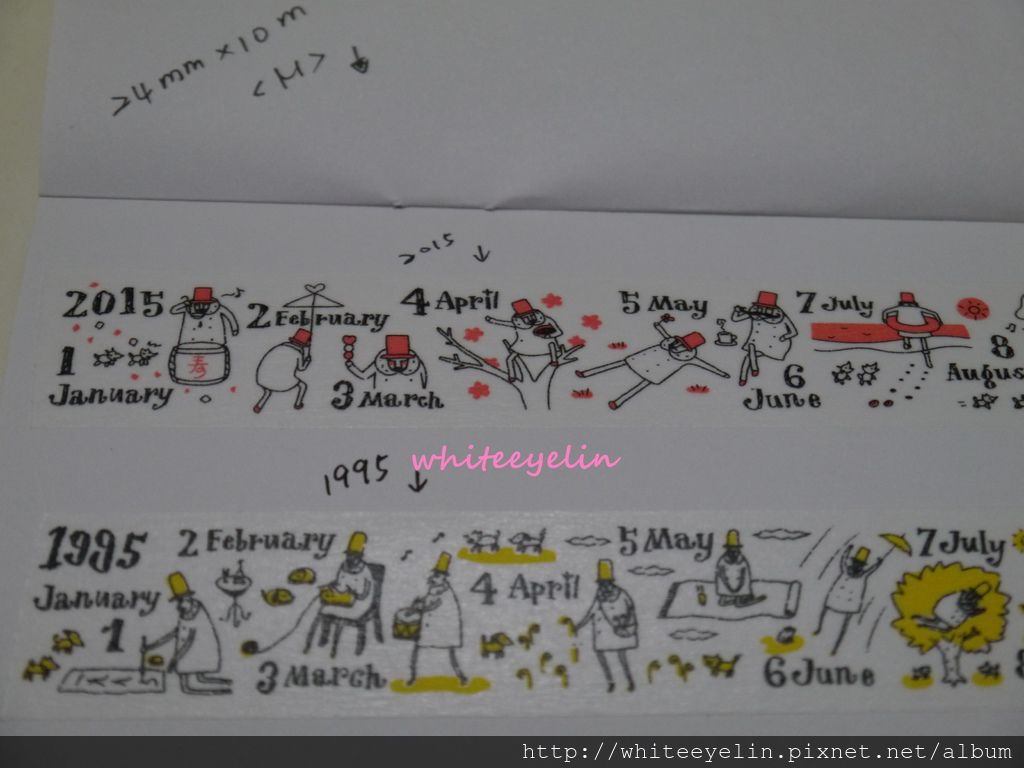 24mm×10m
<M> ↓
2015 ↓
2015
1
January
2 February
3 March
4 April
5 May
6
June
7 July
8
Augus
寿
1995 ↓
whiteeyelin
1995
January
1
2 February
3 March
4 April
5 May
6 June
7 July
8
http://whiteeyelin.pixnet.net/album